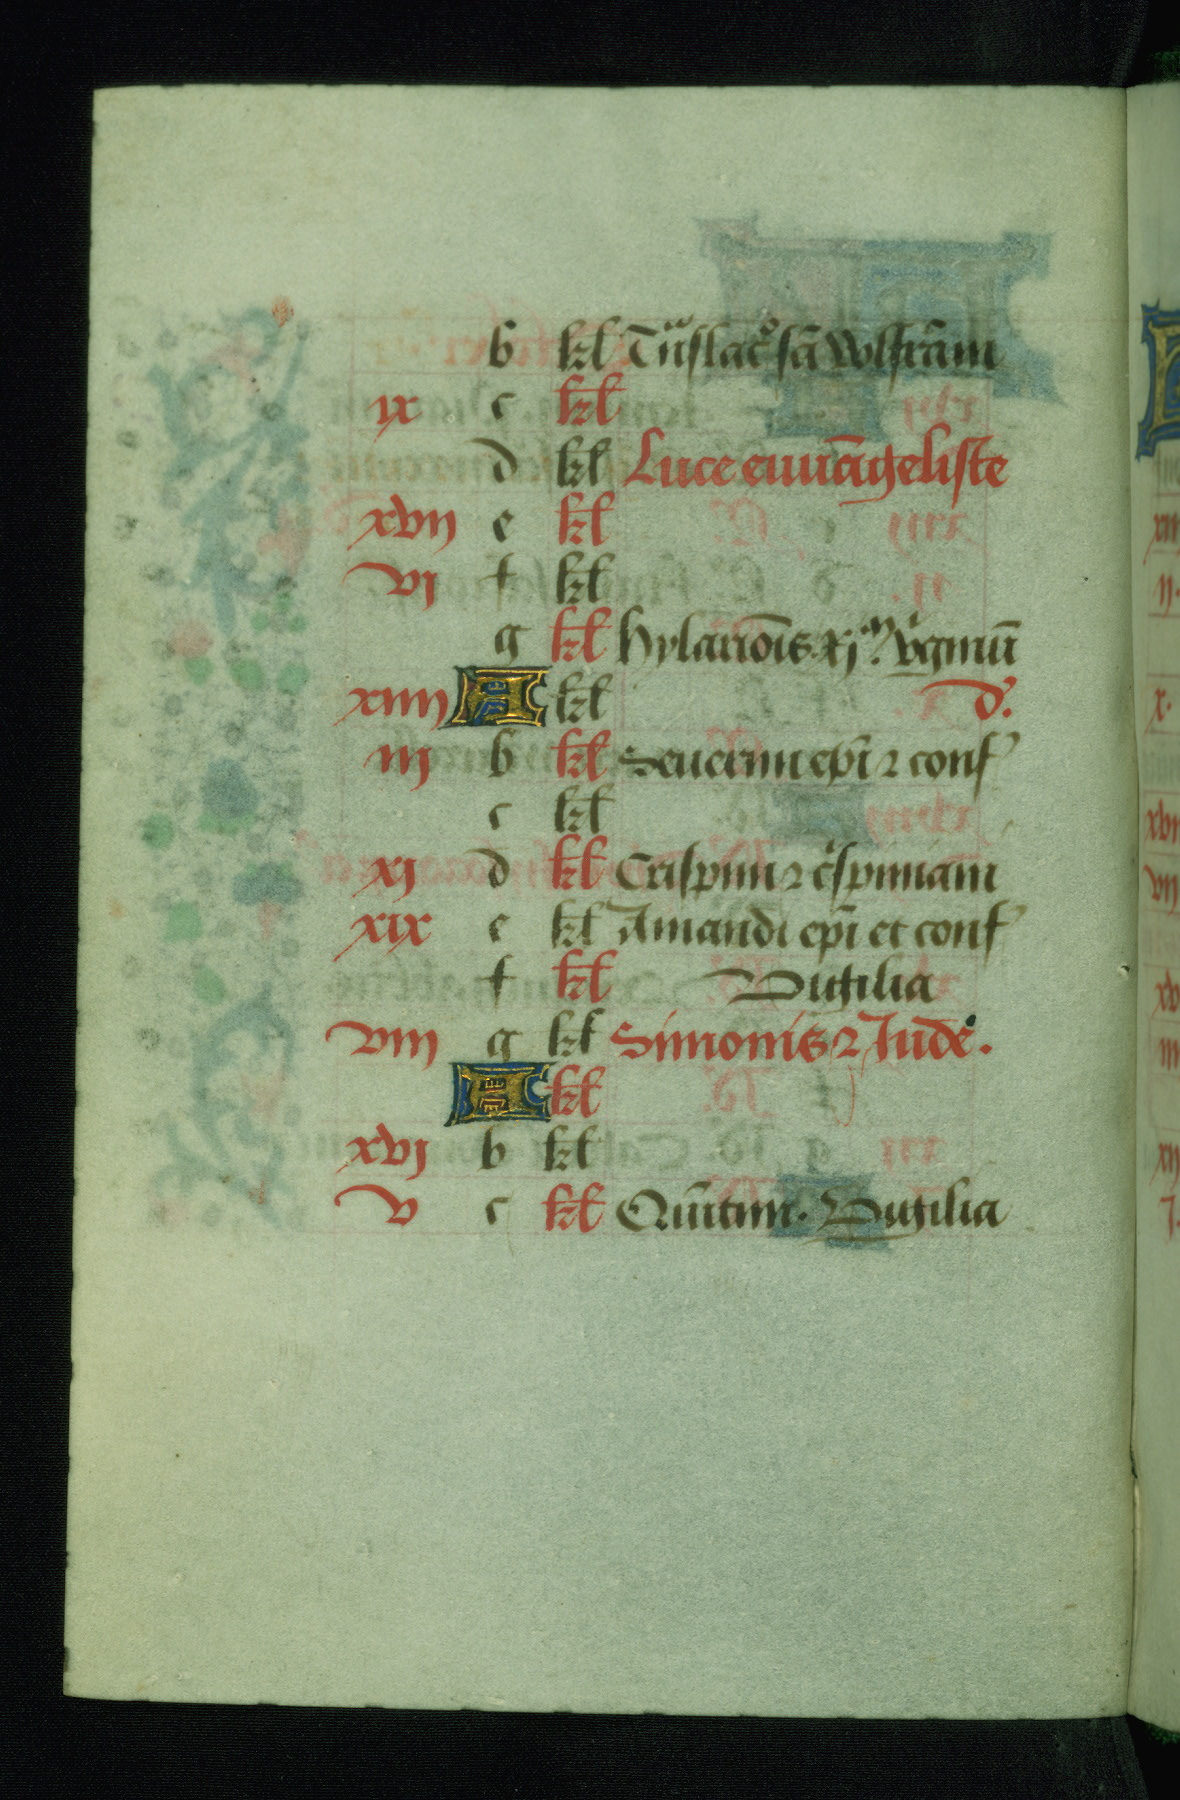 b kl Tͣnslac̊ sā wlfrāni
ix c kl
d kl Luce euuāgeliste
xvij e kl
vj f kl
g kl Hylariōis. xjᵐ. v̾ginū
xiiij A kl d᾽.
iij b kl Seuerini ep̄i ⁊ conf᾽
c kl
xj d kl Crispini ⁊ c̾spiniani
xix e kl Amandi ep̄i et conf᾽
f kl Vigilia
viij g kl Simonis ⁊ Iude.
A kl
xvj b kl
v c kl Quītini. Vigilia